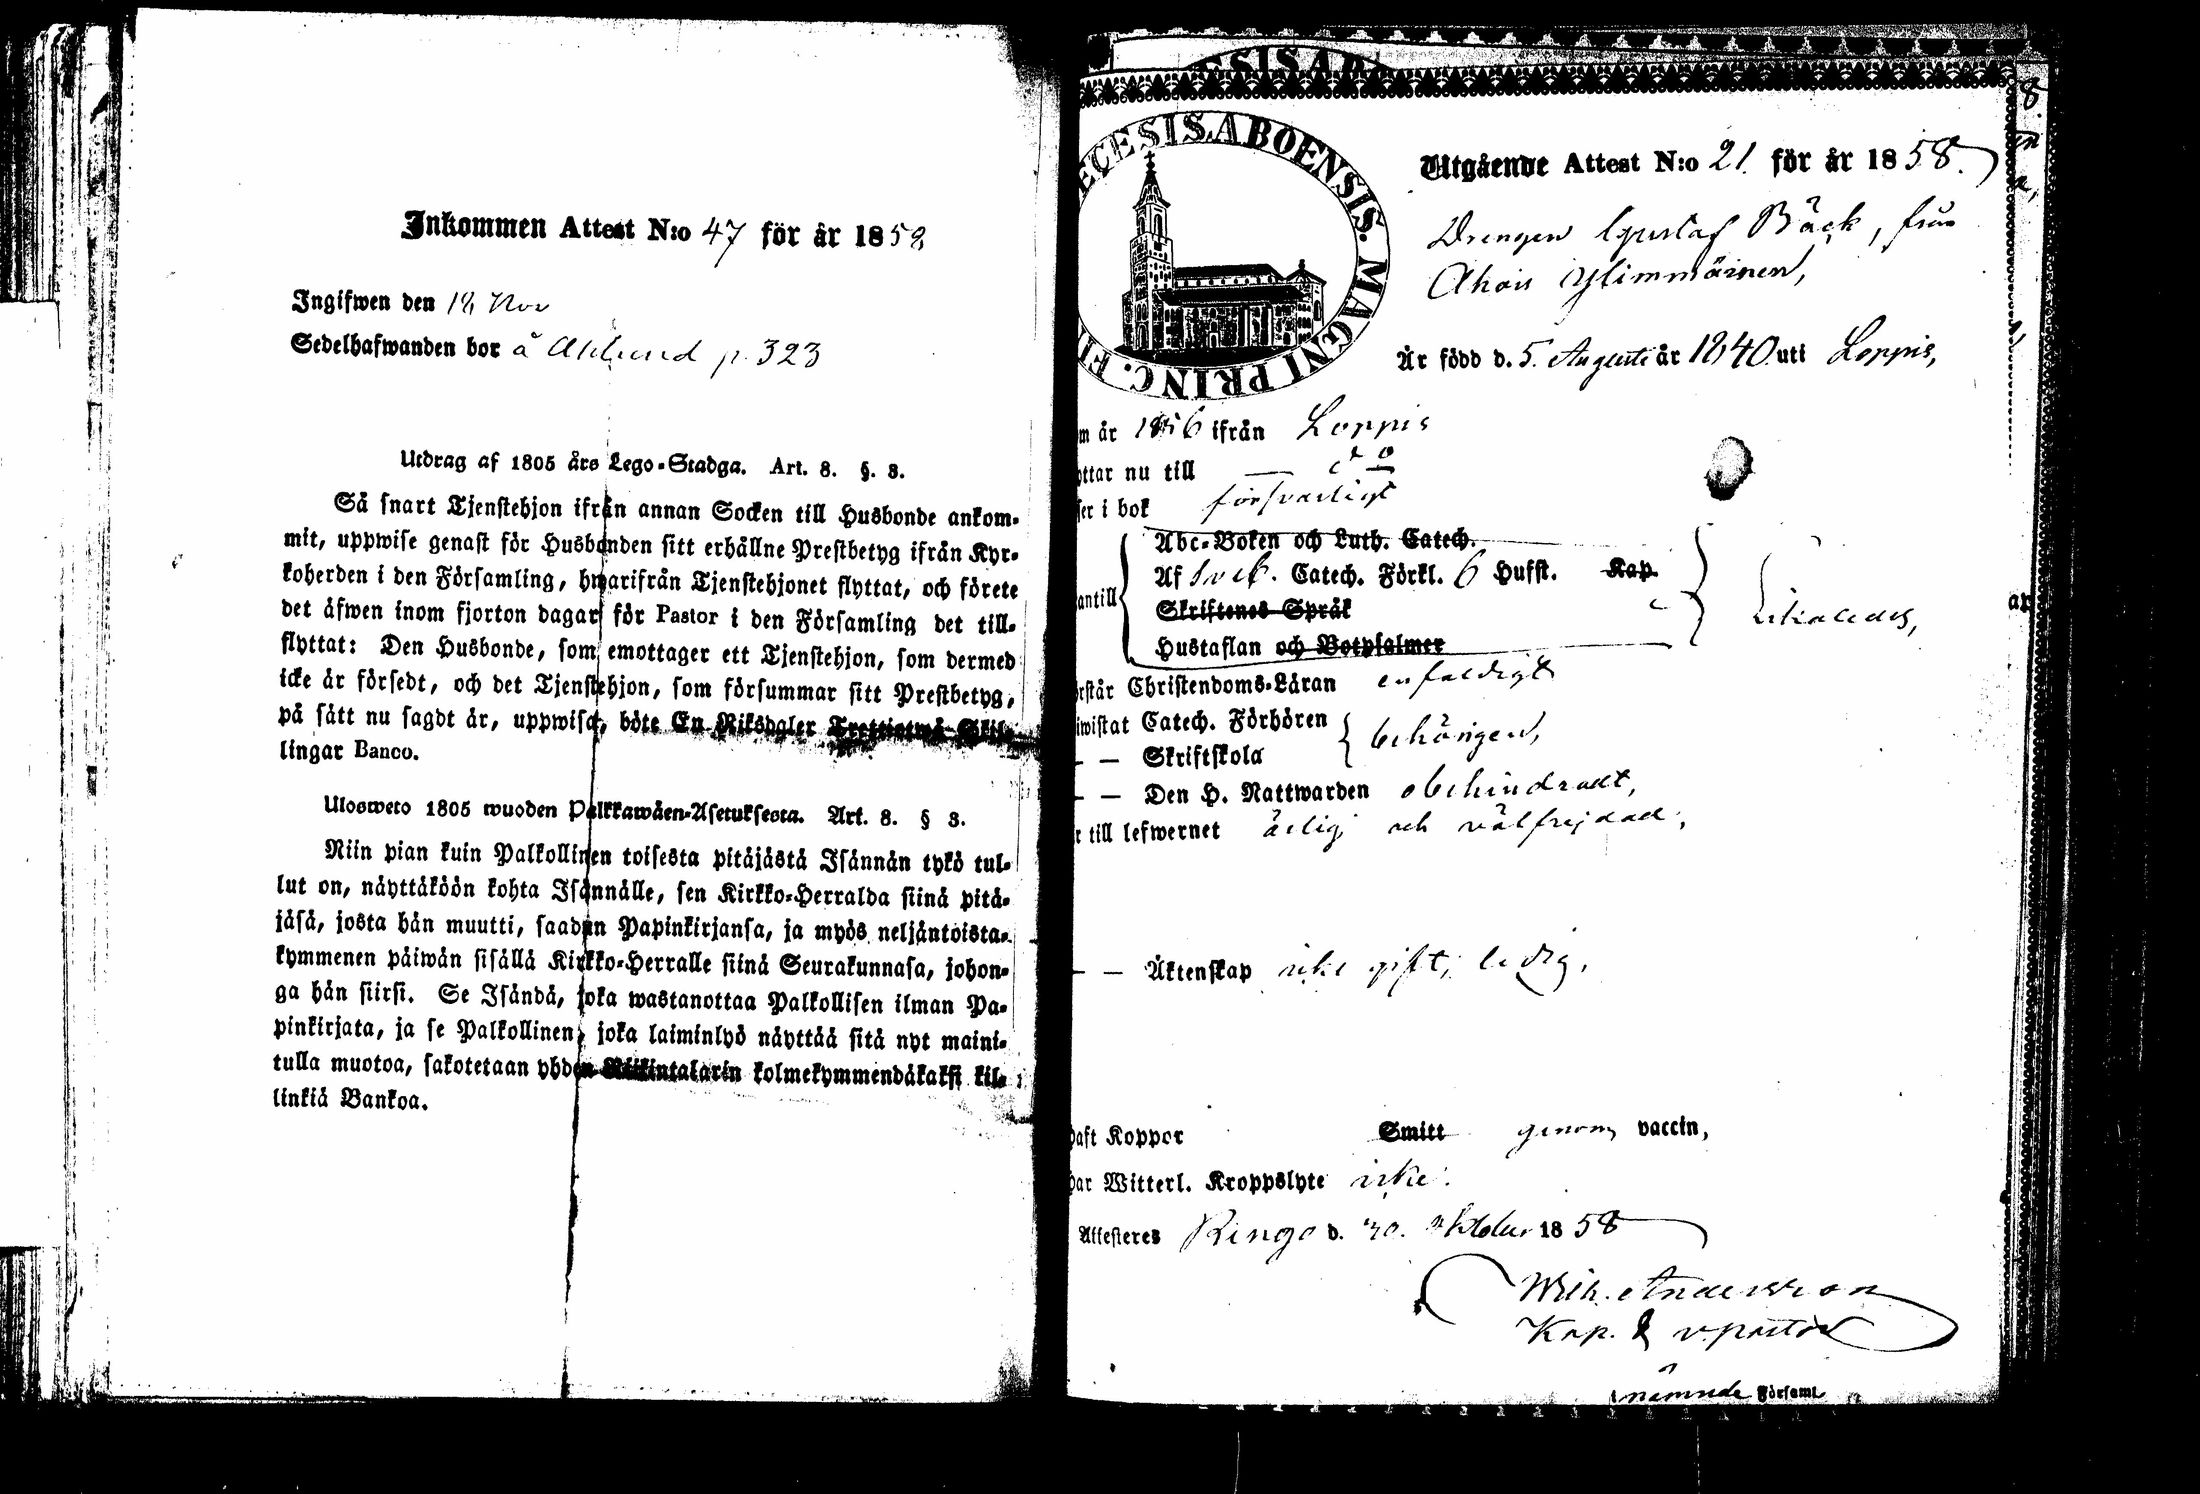 Inkommen Attest N:o 47 för år 1858
Ingifwen den 18 Nov
Sedelhafwanden bor å Aklund p. 323
Utdrag af 1805 års Lego-Stadga. Art. 8. §. 3.
Så snart Tjenstehjon ifrån annan Socken till Husbonde ankom-
mit, uppwise genast för Husbonden sitt erhållne Prestbetyg ifrån Kyr-
koherden i den Församling, hwarifrån Tjenstehjonet flyttat, och förete
det äfwen inom fjorton dagar för Pastor i den Församling det till-
flyttat: Den Husbonde, som emottager ett Tjenstehjon, som dermed
icke är försedt, och det Tjenstehjon, som försummar sitt Prestbetyg,
på sätt nu sagdt är, uppwisa, böte En Riksdaler Trettiotwå Skil-
lingar Banco.
Ulosweto 1805 wuoden Palkkawäen-Asetuksesta. Art. 8. § 3.
Niin pian kuin Palkollinen toisesta pitäjästä Isännän tykö tul-
lut on, näyttäköön kohta Isännälle, sen Kirkko-Herralda siinä pitä-
jäsä, josta hän muutti, saadun Papinkirjansa, ja myös neljäntoista-
kymmenen päiwän sisällä Kirkko-Herralle siinä Seurakunnasa, johon-
ga hän siirsi. Se Isändä, joka wastanottaa Palkollisen ilman Pa-
pinkirjata, ja se Palkollinen, joka laiminlyö näyttää sitä nyt maini-
tulla muotoa, sakotetaan yhden Riikintalarin kolmekymmendäkaksi kil-
linkiä Bankoa.
ECESIS ABOENSIS. MAGNI PRINC. FI
Utgående Attest N:o 21 för år 1858.
Drengen Gustaf Bäck, från
Ahois Ylimmäinen,
Är född d. 5. Augusti år 1840 uti Loppis,
m år 1856 ifrån Loppis
ottar nu till — d o —
ser i bok försvarligt
Abc-Boken och Luth. Catech.
Af Sveb. Catech. Förkl. 6 Hufst. Kap.
antill
Skriftenes Språk
Hustaflan och Botpsalmer
örstår Christendoms-Läran enfaldigt
iwistat Catech. Förhören
behörigen,
— — Skriftskola
— — Den H. Nattwarden obehindradt,
r till lefwernet ärlig och välfrejdad,
— — Äktenskap icke gift, ledig,
haft Koppor Smitt genom vaccin,
har Witterl. Kroppslyte icke.
Attesteres Kingo d. 30. Oktober 1858
Wilh. Andersson
Kap. & v.pastor
nämnde Församl.